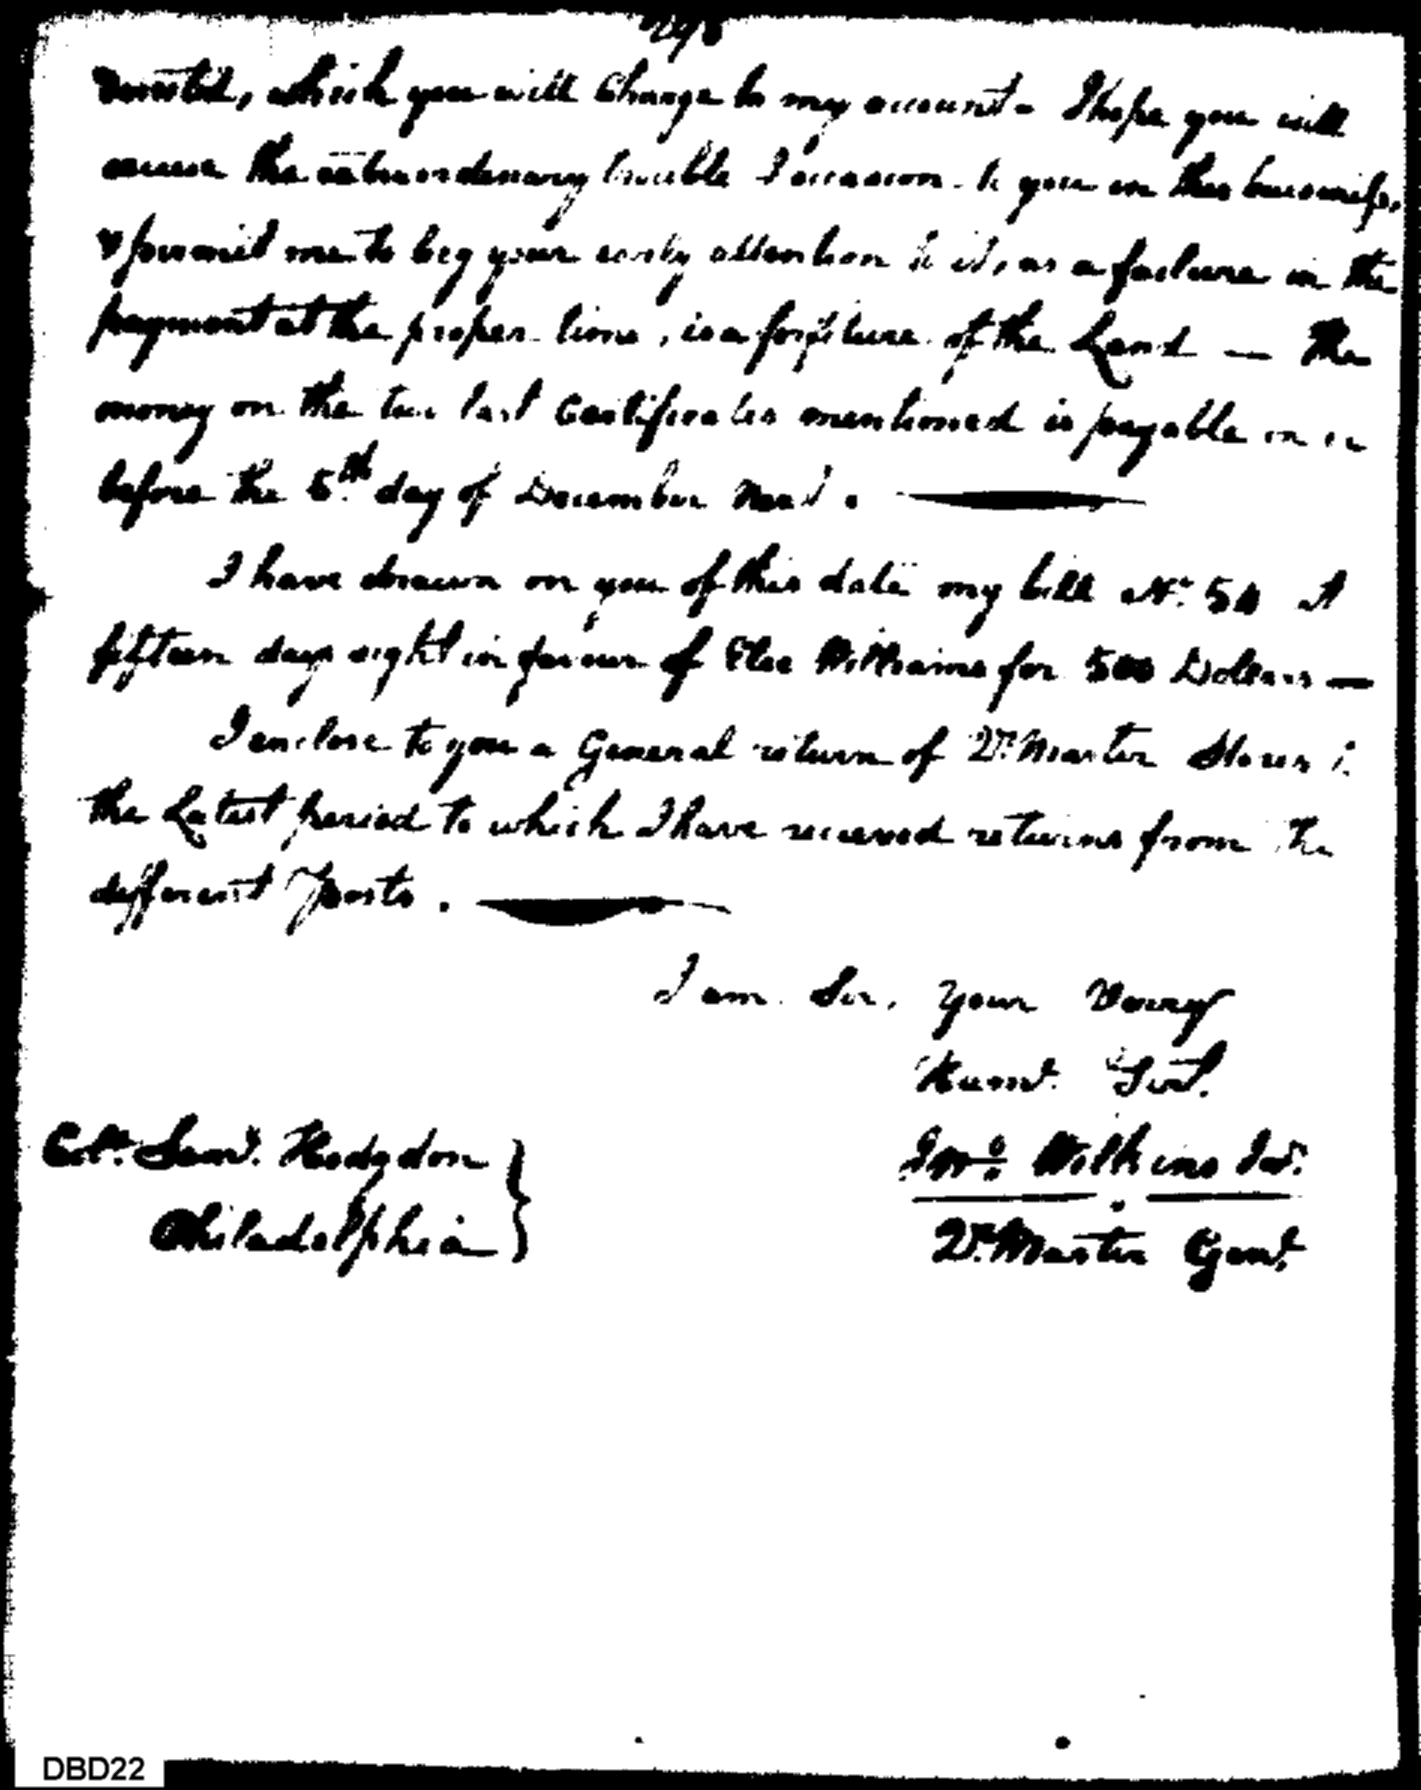 which you will Charge to my account - I hope you will
excuse the extraordenary trouble I occasion to you in this business,
& permit me to beg your early attention to it, as a faelure in the
payment at the proper time, is a forfiture of the Land — The
money on the two last Certificates mentioned is payable on or
before the 5th day of December next.
I have drawn on you of this date my bill No. 54 At
fifteen days sight in favour of Elie Williams for 500 Dollars —
I enclose to you a General return of Qr. Master Stores to
the Latest period to which I have recieved returns from the
different Posts.
I am Sir, Your Verry
Huml. Servt.
Jno. Wilkins Jr.
Qr. Master Genl.
Col. Saml. Hodgdon
Philadelphia
DBD22